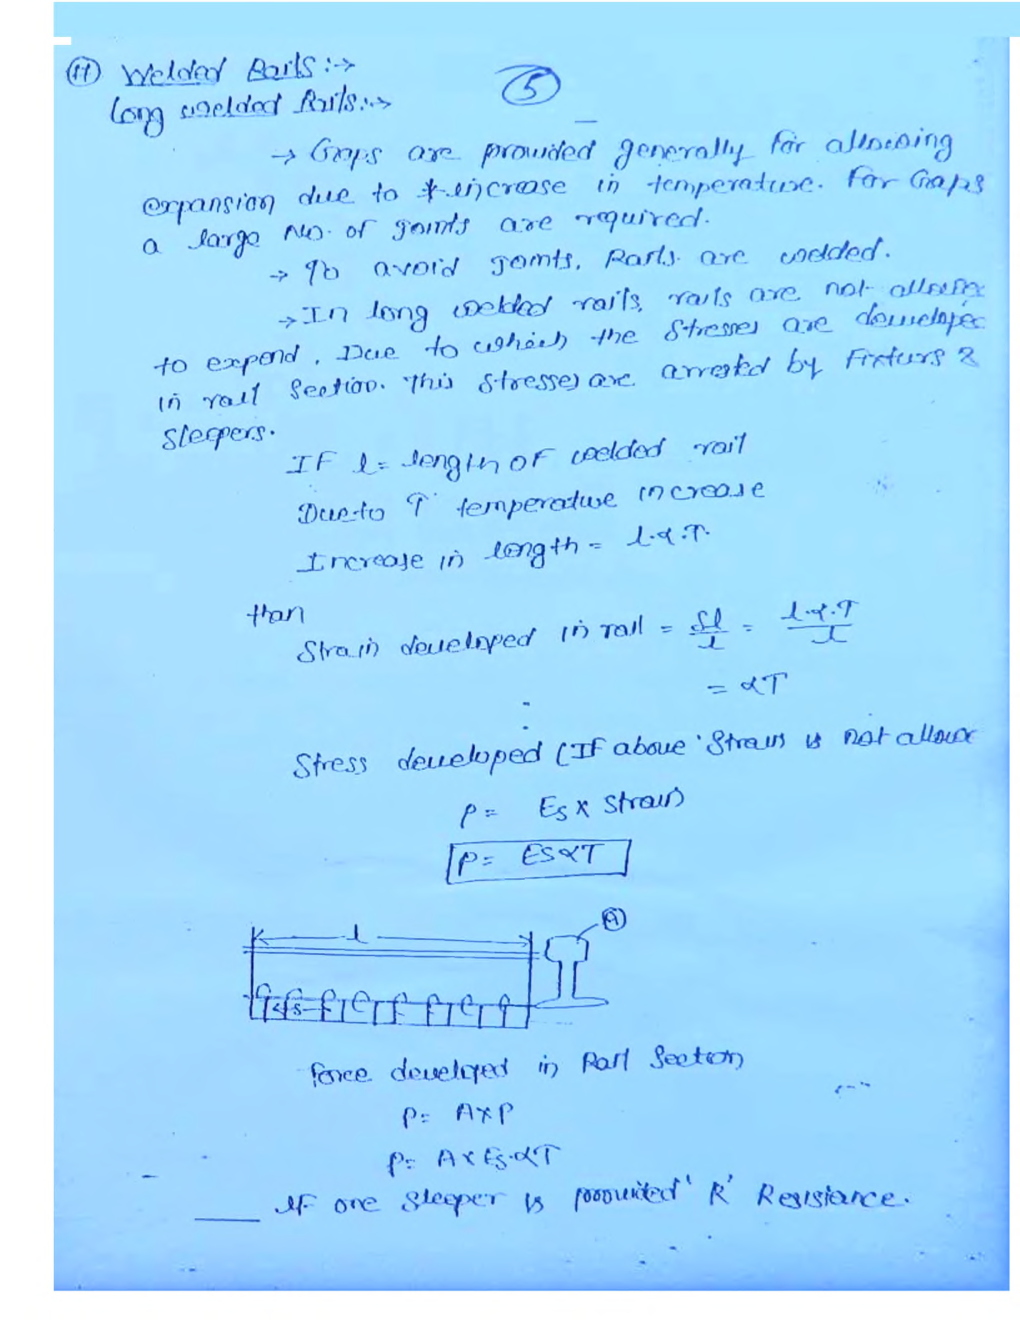 (11) Welded Rails :->
Long welded Rails :->
5
-> Gaps are provided generally for allowing
expansion due to increase in temperature. For Gaps
a large No. of joints are required.
-> To avoid joints, Rails are welded.
-> In long welded rails, rails are not allowe
to expend. Due to which the stresses are develope
in rail section. This stresses are arrested by Fixturs &
Sleepers.
IF l = length of welded rail
Due to T temperature increase
Increase in length = l.α.T.
than
Strain developed in rail = δl/l = l.α.T/l
= αT
Stress developed (If above strain is not allowe
P = Es x strain
P = EsαT
l
A
s
Force developed in Rail Section
P = A x P
P = A x Es.αT
If one sleeper is provided 'R' Resistance.